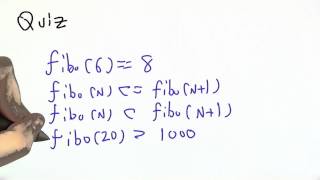 Quiz
fibo(6) == 8
fibo(N) <= fibo(N+1)
fibo(N) < fibo(N+1)
fibo(20) > 1000